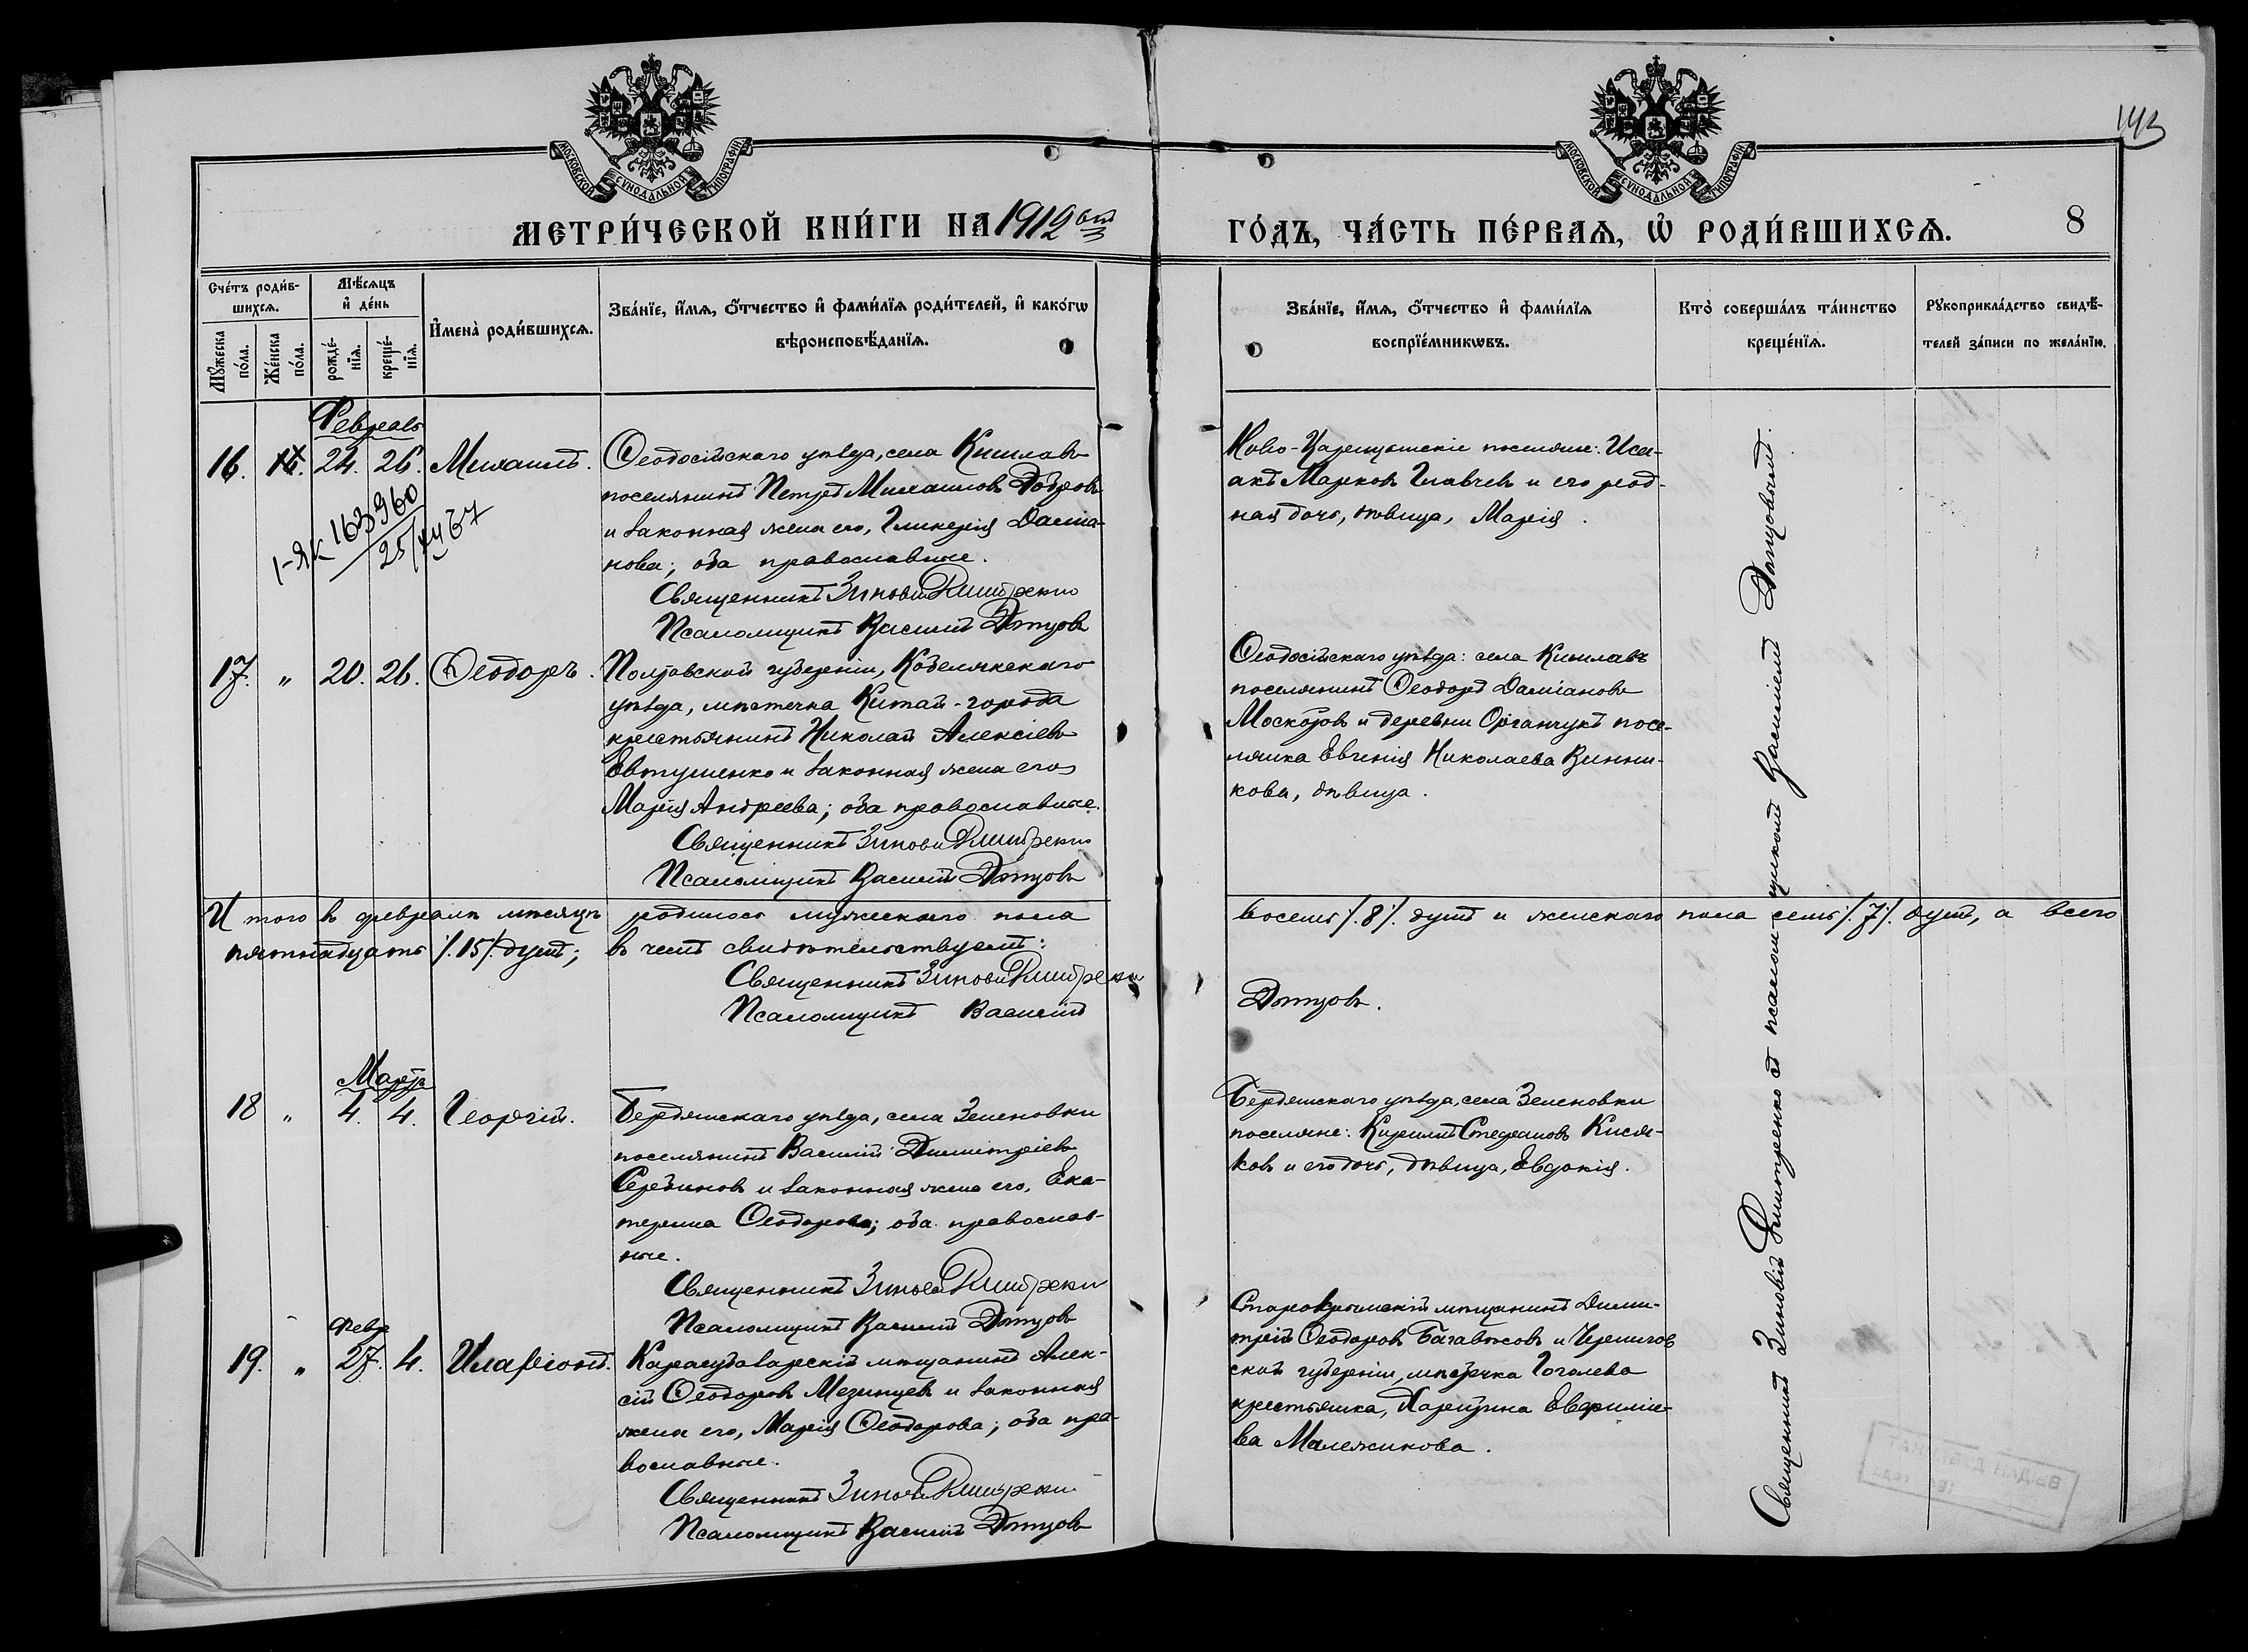 143
МОСКОВСКОЙ СУНОДАЛЬНОЙ ТИПОГРАФІИ
МОСКОВСКОЙ СУНОДАЛЬНОЙ ТИПОГРАФІИ
МЕТРИ́ЧЕСКОЙ КНИ́ГИ НА 1912
ГО́ДЪ, ЧА́СТЬ ПЕ́РВАѦ, Ѡ РОДИ́ВШИХСѦ.
8
Сче́тъ роди́в-
шихсѧ.
Мѣ́сѧцъ
и҆ де́нь
И҆мена̀ роди́вшихсѧ.
Зва́нїе, и҆́мѧ, ѻ҆́тчество и҆ фами́лїѧ роди́телей, и҆ како́гѡ
вѣроисповѣ́данїѧ.
Мꙋ́жеска
по́ла.
Же́нска
по́ла.
рожде́-
нїѧ.
креще́-
нїѧ.
Зва́нїе, и҆́мѧ, ѻ҆́тчество и҆ фами́лїѧ
воспрїе́мникѡвъ.
Кто̀ соверша́лъ та́инство
креще́нїѧ.
Рꙋкоприкла́дство свидѣ́-
телей за́писи по жела́нїю.
Февраль
16. 24. 26. Михаилъ.
Ѳеодосійскаго уѣзда, села Кишлавъ
поселянинъ Петръ Михаиловъ Добровъ
и законная жена его, Гликерія Даміа-
нова; оба православные.
Священникъ Зиновій Дмитренко
Псаломщикъ Василій Донцовъ
Ново-Царицынскіе поселяне: Иса-
акъ Марковъ Главчевъ и его род-
ная дочь, дѣвица, Марія.
1-ЯК 163960
25/
17. " 20. 26. Ѳеодоръ.
Полтавской губерніи, Кобелякскаго
уѣзда, мѣстечка Китай-города
крестьянинъ Николай Алексіевъ
Евтушенко и законная жена его
Марія Андреева; оба православные.
Священникъ Зиновій Дмитренко
Псаломщикъ Василій Донцовъ
Ѳеодосійскаго уѣзда: села Кишлавъ
поселянинъ Ѳеодоръ Даміановъ
Москотовъ и деревни Органчукъ посе-
лянка Евгенія Николаева Винни-
кова, дѣвица.
Итого въ февралѣ мѣсяцѣ родилось мужескаго пола восемь /.8/. душъ и женскаго пола семь /.7/. душъ, а всего
пятнадцать /.15/. душъ; въ чемъ свидѣтельствуемъ:
Священникъ Зиновій Дмитренко
Псаломщикъ Василій Донцовъ.
Мартъ
18 " 4. 4. Георгій.
Бердянскаго уѣзда, села Зеленовки
поселянинъ Василій Димитріевъ
Сербиновъ и законная жена его, Ека-
терина Ѳеодорова; оба православ-
ные.
Священникъ Зиновій Дмитренко
Псаломщикъ Василій Донцовъ
Бердянскаго уѣзда, села Зеленовки
поселяне: Кириллъ Стефановъ Кися-
ковъ и его дочь, дѣвица, Евдокія.
Февр
19. " 27. 4. Иларіонъ.
Карасубазарскій мѣщанинъ Алек-
сій Ѳеодоровъ Мезинцевъ и законная
жена его, Марія Ѳеодорова; оба пра-
вославные.
Священникъ Зиновій Дмитренко
Псаломщикъ Василій Донцовъ
Старокрымскій мѣщанинъ Дими-
трій Ѳеодоровъ и Чернигов
ской губерніи, мѣстечка Гоголева
крестьянка, Харитина Евфиміе-
ва Малежикова.
Священникъ Зиновій Дмитренко съ псаломщикомъ Василіемъ Донцовымъ.